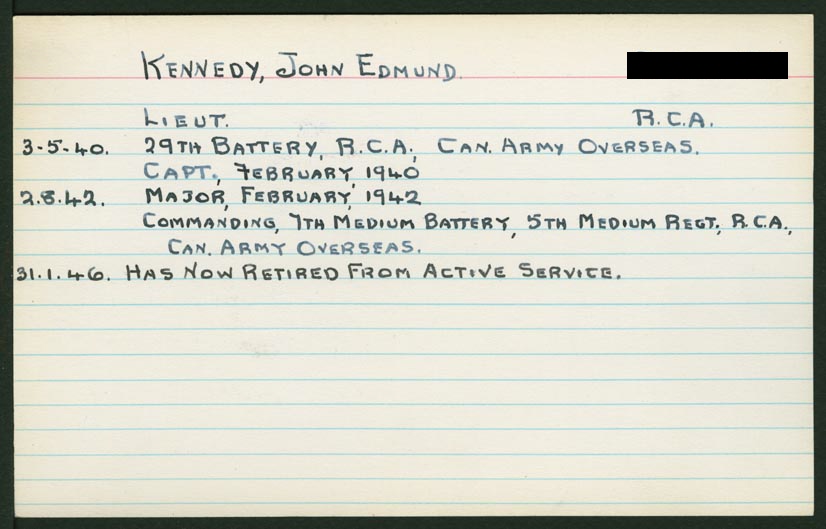 KENNEDY, JOHN EDMUND.
LIEUT. R.C.A.
3-5-40. 29TH BATTERY, R.C.A., CAN. ARMY OVERSEAS.
CAPT., FEBRUARY, 1940
2.8.42. MAJOR, FEBRUARY, 1942
COMMANDING, 7TH MEDIUM BATTERY, 5TH MEDIUM REGT., R.C.A.,
CAN. ARMY OVERSEAS.
31.1.46. HAS NOW RETIRED FROM ACTIVE SERVICE.